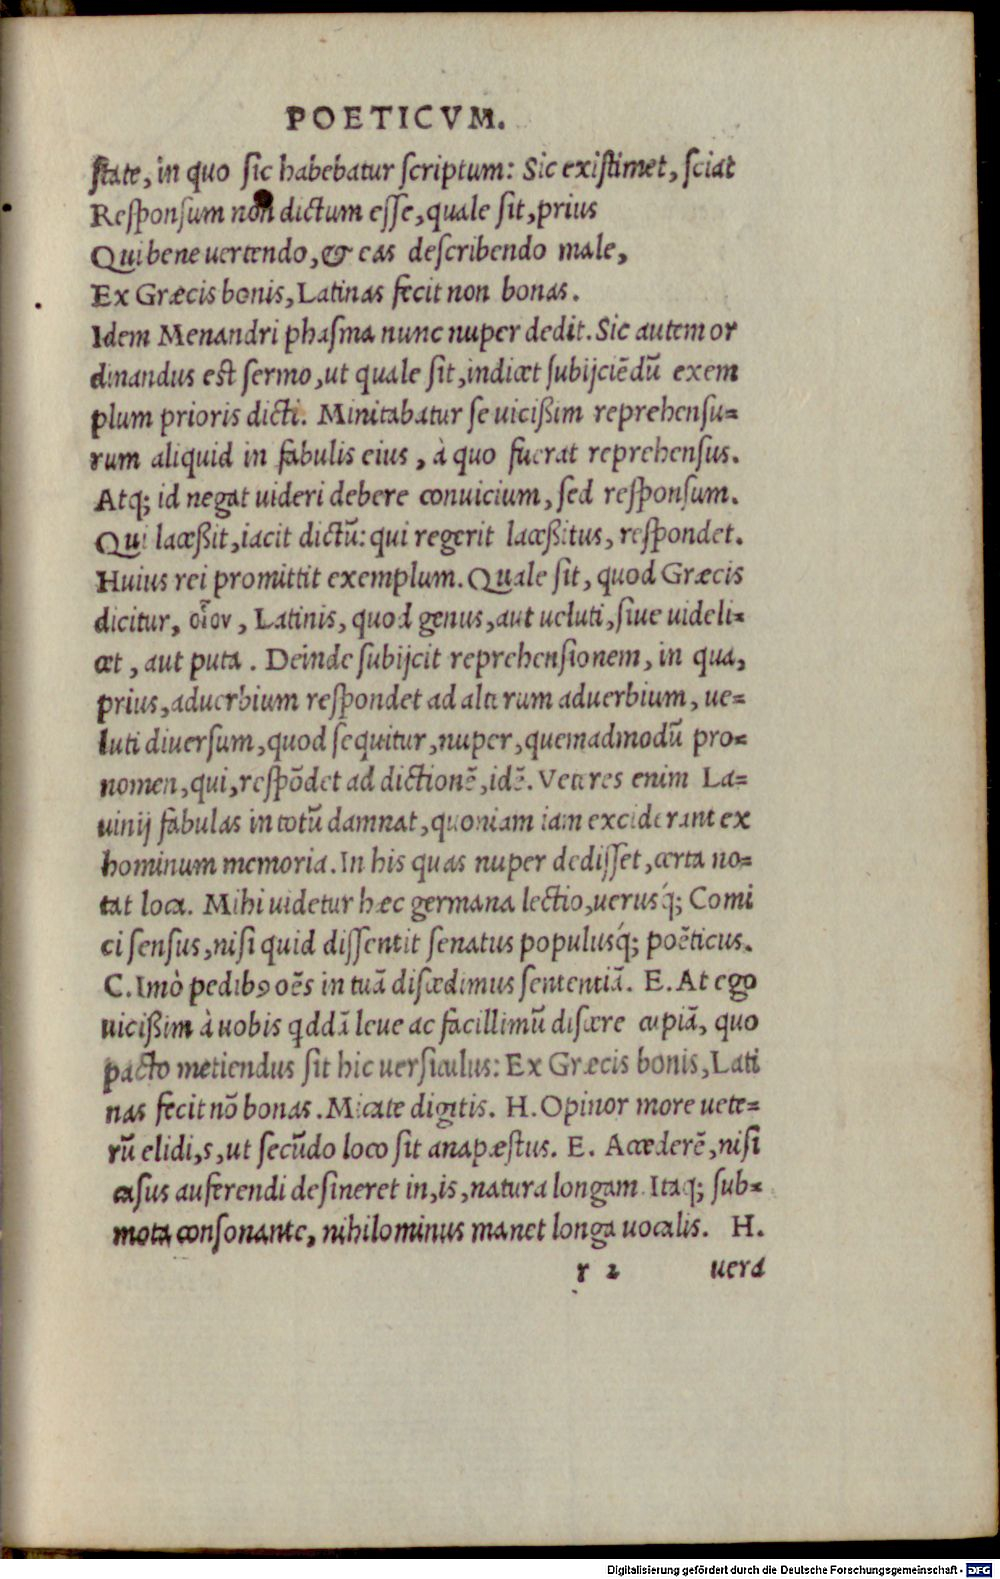 POETICVM.
ſtate, in quo ſic habebatur ſcriptum: Sic exiſtimet, ſciat
Reſponſum non dictum eſſe, quale ſit, prius
Qui bene uertendo, & eas deſcribendo male,
Ex Græcis bonis, Latinas fecit non bonas.
Idem Menandri phaſma nunc nuper dedit. Sic autem or
dinandus est ſermo, ut quale ſit, indicet ſubijciēdū exem
plum prioris dicti. Minitabatur ſe uicißim reprehenſu=
rum aliquid in fabulis eius, à quo fuerat reprehenſus.
Atq; id negat uideri debere conuicium, ſed reſponſum.
Qui laceßit, iacit dictū: qui regerit laceßitus, reſpondet.
Huius rei promittit exemplum. Quale ſit, quod Græcis
dicitur, οἷον, Latinis, quod genus, aut ueluti, ſiue uideli=
cet, aut puta. Deinde ſubijcit reprehenſionem, in qua,
prius, aduerbium reſpondet ad alterum aduerbium, ue=
luti diuerſum, quod ſequitur, nuper, quemadmodū pro=
nomen, qui, reſpōdet ad dictionē, idē. Veteres enim La=
uinij fabulas in totū damnat, quoniam iam exciderant ex
hominum memoria. In his quas nuper dediſſet, certa no=
tat loca. Mihi uidetur hæc germana lectio, uerusq́; Comi
ci ſensus, niſi quid diſſentit ſenatus populusq́; poēticus.
C. Imò pedibꝯ oēs in tuā diſcedimus ſententiā. E. At ego
uicißim à uobis qddā leue ac facillimū diſcere cupiā, quo
pacto metiendus ſit hic uerſiculus: Ex Græcis bonis, Lati
nas fecit nō bonas. Micate digitis. H. Opinor more uete=
rū elidi, s, ut ſecūdo loco ſit anapæſtus. E. Accederē, niſi
caſus auferendi deſineret in, is, natura longam. Itaq; ſub=
mota conſonante, nihilominus manet longa uocalis. H.
r 2 uera
Digitalisierung gefördert durch die Deutsche Forschungsgemeinschaft - DFG